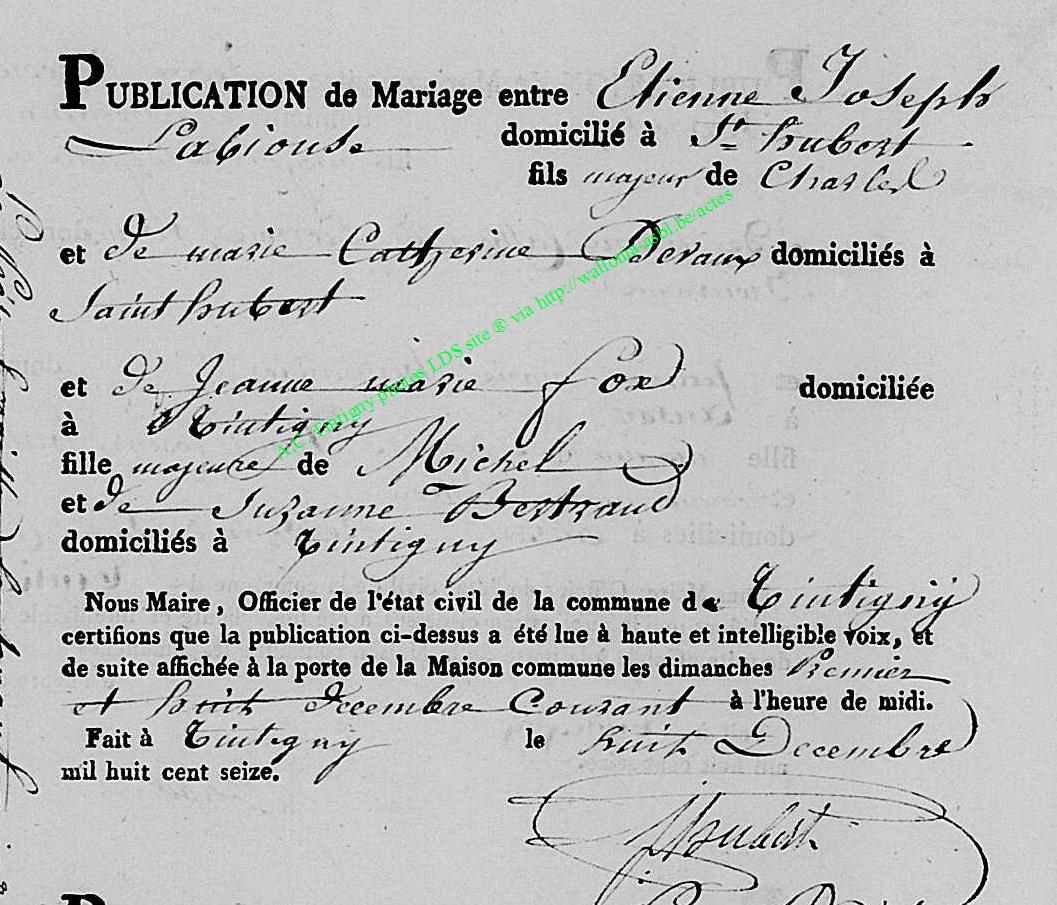 PUBLICATION de Mariage entre Etienne Joseph
Labiouse domicilié à St hubert
fils majeur de Charles
et de marie Catherine Devaux domiciliés à
Saint hubert
et de Jeanne marie fox domiciliée
à Tintigny
fille majeure de Michel
et de Suzanne Bertrand
domiciliés à Tintigny
Nous Maire, Officier de l'état civil de la commune de Tintigny
certifions que la publication ci-dessus a été lue à haute et intelligible voix, et
de suite affichée à la porte de la Maison commune les dimanches Premier
et huit decembre Courant à l'heure de midi.
Fait à Tintigny le huit Decembre
mil huit cent seize.
hubert
A.C. Tintigny photos LDS site ® via http://wallonia-asbl.be/actes